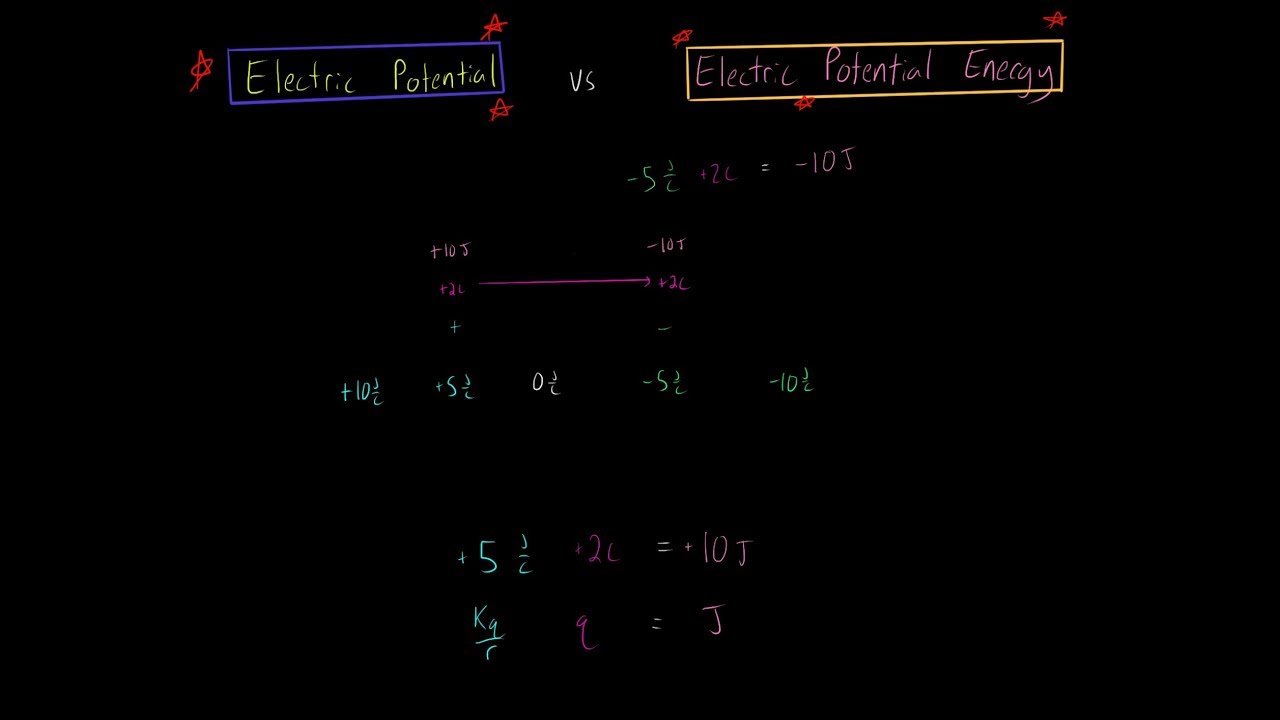 Electric Potential vs Electric Potential Energy
-5 J/C +2C = -10J
+10J -10J
+2C +2C
+ -
+10 J/C +5 J/C 0 J/C -5 J/C -10 J/C
+5 J/C +2C = +10J
Kq/r q = J